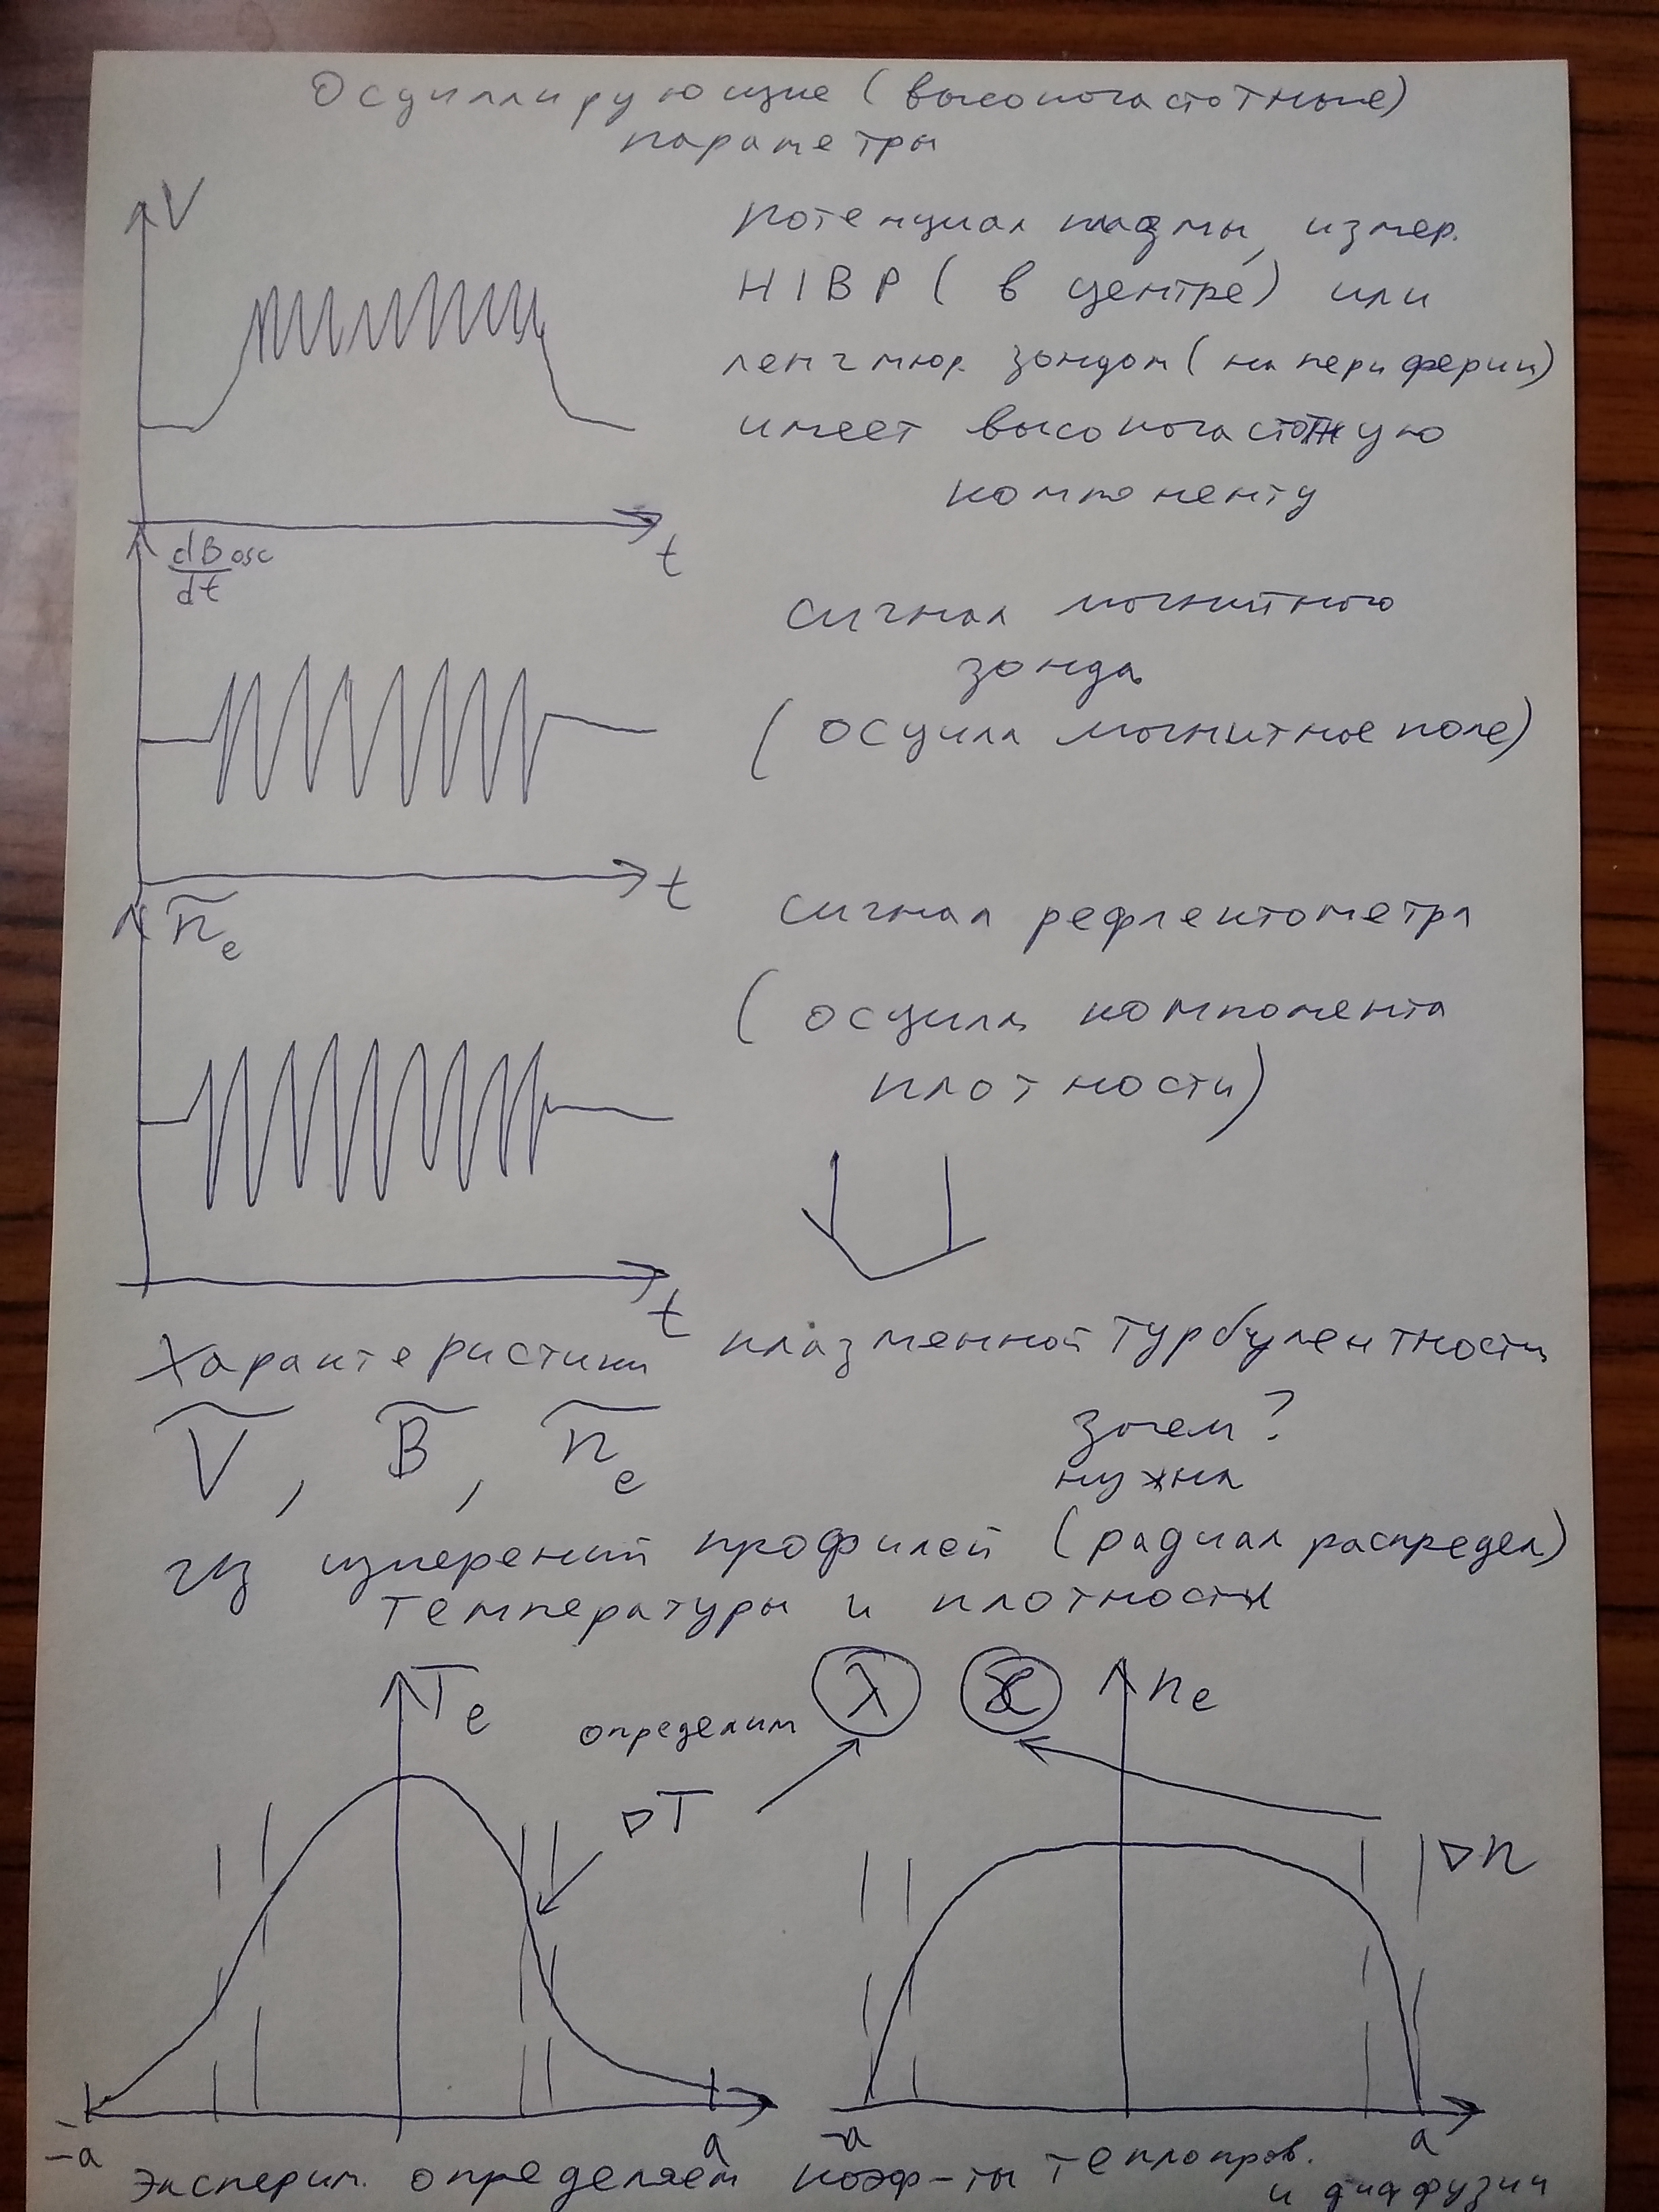 Осциллирующие (высокочастотные)
параметры
V
потенциал плазмы, измер.
HIBP (в центре) или
ленгмюр. зондом (на периферии)
имеет высокочастотную
компоненту
t
dBosc
dt
сигнал магнитного
зонда
(осцилл магнитное поле)
t
ñe
сигнал рефлектометра
(осцилл компонента
плотности)
t
Характеристики плазменной турбулентности
Ṽ, B̃, ñe
зачем?
нужна
из измерений профилей (радиал распредел)
температуры и плотности
Te
определим λ
ne
∇T
∇n
-a a
-a a
Эксперим. определяем коэф-ты теплопров.
и диффузии